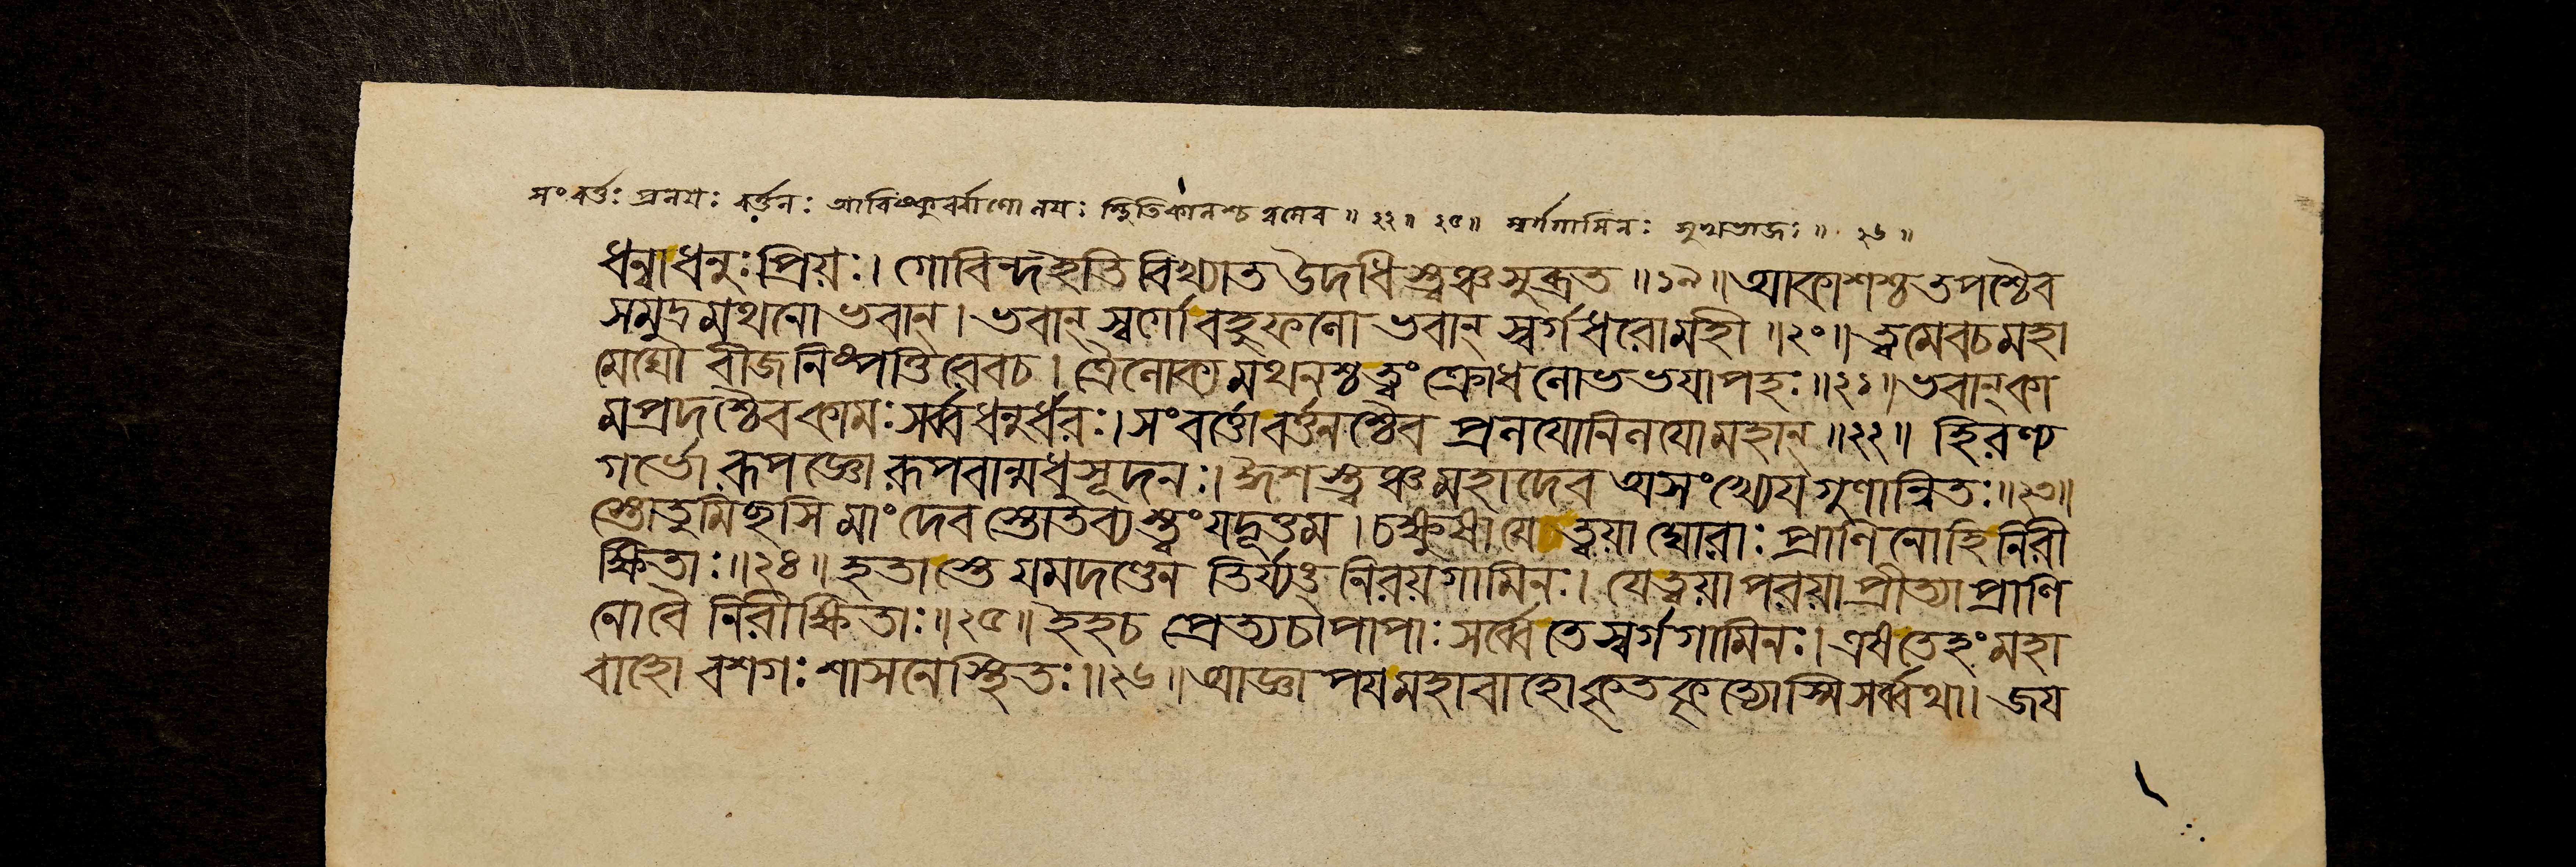 সংবর্ত্তঃ প্রলয়ঃ বর্ত্তনঃ আবিষ্কুর্ব্বাণো লয়ঃ স্থিতিকালশ্চ ত্বমেব ॥ ২২॥ ২৫॥ স্বর্গগামিনঃ সুখভাজঃ ॥ ২৬ ॥
ধন্বাধনুঃপ্রিয়ঃ। গোবিন্দইতি বিখ্যাত উদধিস্ত্বঞ্চসুব্রত ॥১৯॥ আকাশশ্চতপশ্চৈব
সমুদ্রমথনোভবান্। ভবান্ স্বর্গোবহুফলো ভবান্ স্বর্গধরোমহী ॥২০॥ ত্বমেবচমহা
মেঘো বীজনিষ্পত্তিরেবচ। ত্রৈলোক্যমথনশ্চত্বং ক্রোধলোভভয়াপহঃ॥২১॥ ভবান্‌কা
মপ্রদশ্চৈবকামঃসর্ব্বধনুর্ধরঃ। সংবর্ত্তোবর্ত্তনশ্চৈব প্রলয়োনিলয়োমহান্ ॥২২॥ হিরণ্য
গর্ভো রূপজ্ঞো রূপবান্মধুসূদনঃ। ঈশস্ত্বঞ্চমহাদেব অসংখ্যেয়গুণান্বিতঃ॥২৩॥
স্তোতুমিহসি মাংদেব স্তোতব্যস্ত্বংযদূত্তম। চক্ষুষা যেচত্বয়া ঘোরাঃ প্রাণিনোহি নিরী
ক্ষিতাঃ॥২৪॥ হতাস্তে যমদণ্ডেন তির্য্যঙ্ নিরয়গামিনঃ। যেত্বয়াপরয়াপ্রীত্যাপ্রাণি
নোবৈ নিরীক্ষিতাঃ॥২৫॥ ইহচ প্রেত্যচাপাপাঃ সর্ব্বেতেস্বর্গগামিনঃ। এষতেহংমহা
বাহো বশগঃশাসনেস্থিতঃ॥২৬॥ আজ্ঞাপয়মহাবাহোকৃতকৃত্যোস্মিসর্ব্বথা। জয়